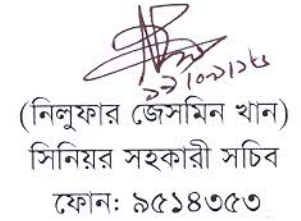 (নিলুফার জেসমিন খান)
সিনিয়র সহকারী সচিব
ফোন: ৯৫১৪৩৫৩